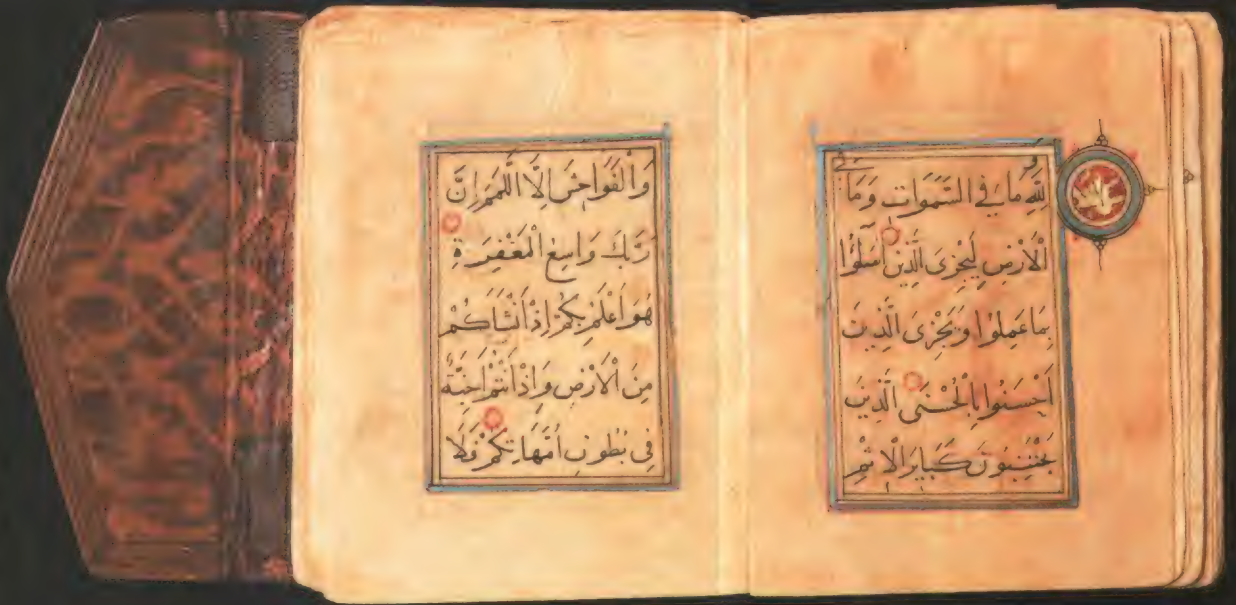 وَلِلّٰهِ مَا فِي السَّمَوَاتِ وَمَا فِي
الْأَرْضِ لِيَجْزِيَ الَّذِينَ أَسَاؤُا
بِمَا عَمِلُوا وَيَجْزِيَ الَّذِينَ
أَحْسَنُوا بِالْحُسْنَى الَّذِينَ
يَجْتَنِبُونَ كَبَايِرَ الْإِثْمِ
وَالْفَوَاحِشَ إِلَّا اللَّمَمَ إِنَّ
رَبَّكَ وَاسِعُ الْمَغْفِرَةِ
هُوَ أَعْلَمُ بِكُمْ إِذْ أَنْشَأَكُمْ
مِنَ الْأَرْضِ وَإِذْ أَنْتُمْ أَجِنَّةٌ
فِي بُطُونِ أُمَّهَاتِكُمْ فَلَا